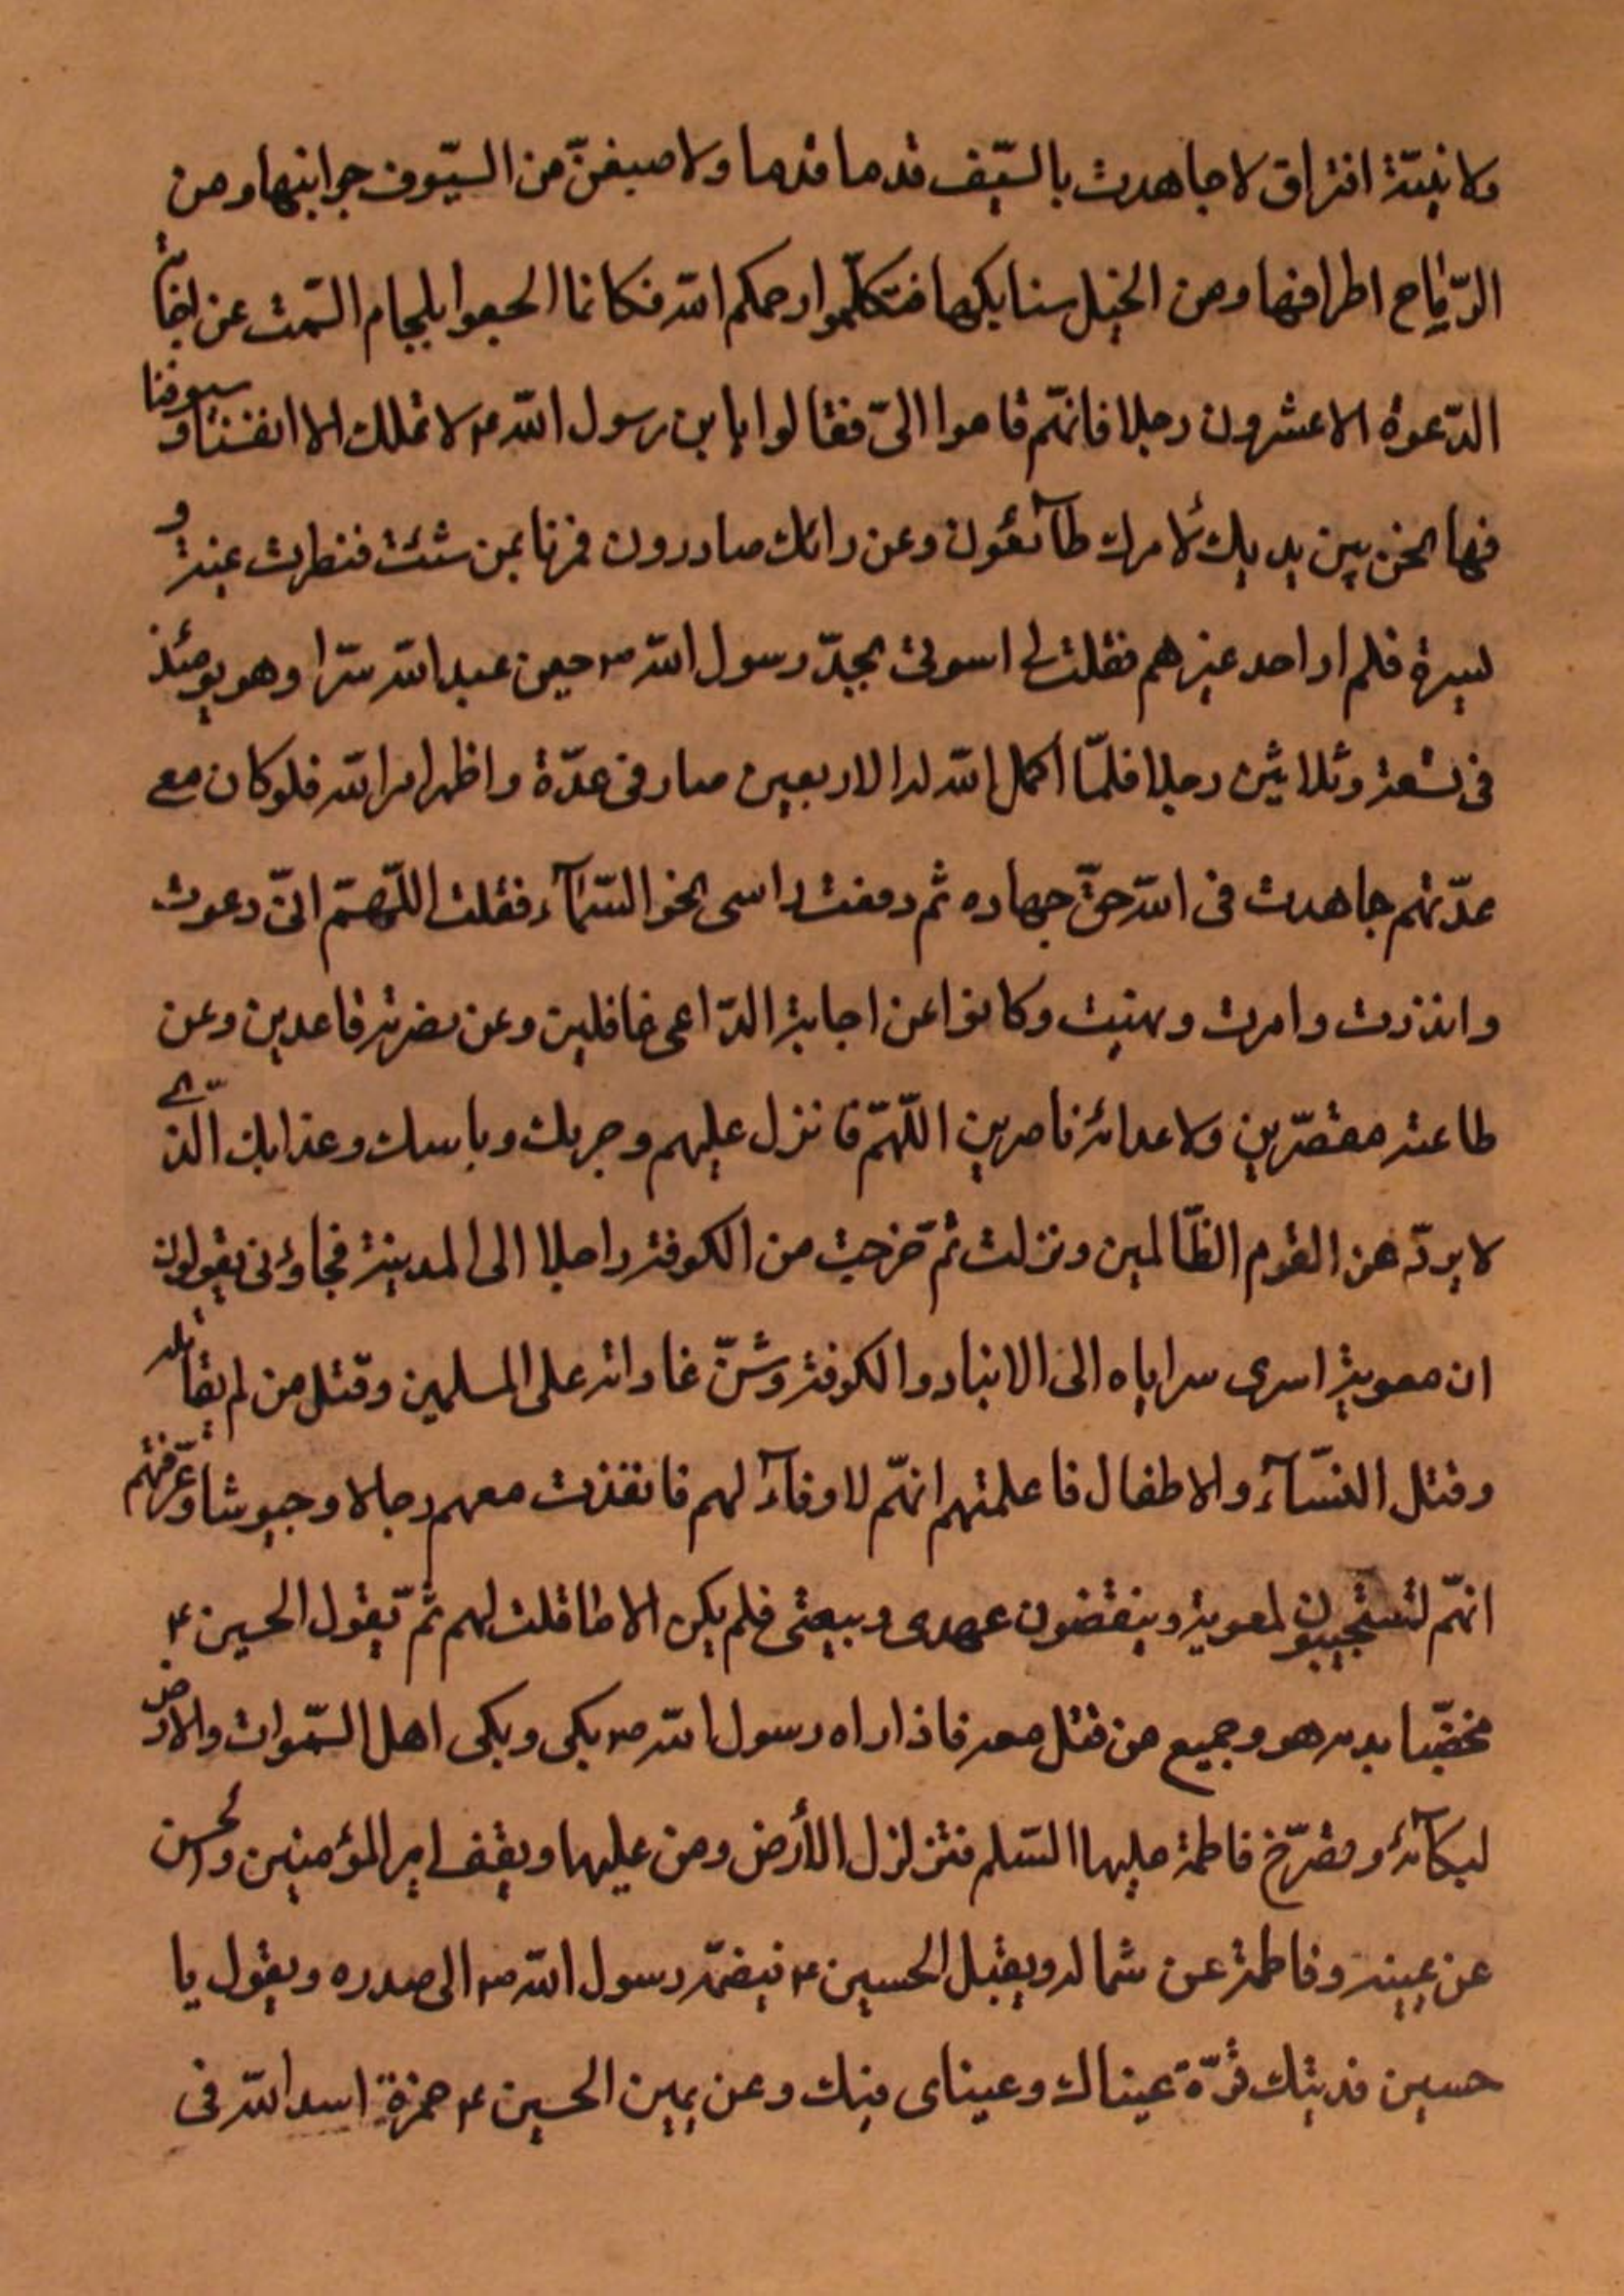 ولا نيّة افتراق لاجاهدت بالسّيف قدما قدما ولاصيفنّ من السيّوف جوانبها ومن
الرّماح اطرافها ومن الخيل سنابكها فتكلّموا رحمكم الله فكانما الجموا بلجام الصّمت عن اجابة
الدّعوة الا عشرون رجلا فانهّم قاموا الىّ فقالوا يا بن رسول الله ص لا نملك الا انفسنا وسيوفنا
فها نحن بين يديك لأمرك طآئعون وعن رائك صادرون فمرنا بمن شئت فنظرت يمنة و
يسرة فلم ار احد غيرهم فقلت لى اسوة بجدّ رسول الله ص حين عبد الله سرّا وهو يومئذ
فى تسعة وثلاثين رجلا فلمّا اكمل الله له الاربعين صار فى عدّة واظهر امر الله فلو كان معى
عدّتهم جاهدت فى الله حقّ جهاده ثم رفعت راسى نحو السّمآء فقلت اللّهمّ انّى دعوت
وانذرت وامرت ونهيت وكانوا عن اجابة الدّاعى غافلين وعن نصرته قاعدين وعن
طاعته مقصّرين ولاعدائه ناصرين اللّهمّ فانزل عليهم وجزك وباسك وعذابك الّذى
لا يردّ عن القوم الظّالمين ونزلت ثمّ خرجت من الكوفة راحلا الى المدينة فجاؤنى يقولون
ان معوية اسرى سراياه الى الانبار والكوفة وشنّ غاراته على المسلمين وقتل من لم يقاتله
وقتل النسّآء والاطفال فاعلمتهم انهّم لا وفآء لهم فانفذت معهم رجالا وجيوشا وعرّفتهم
انهّم لتستجيبون لمعوية وينقضون عهدى وبيعتى فلم يكن الا ما قلت لهم ثمّ يقول الحسين ع
مخضّبا بدمه هو وجميع من قتل معه فاذا راه رسول الله ص بكى وبكى اهل السّموات والارض
لبكآئه وتصرّخ فاطمة عليها السّلم فتزلزل الأرض ومن عليها ويقف امير المؤمنين والحسن
عن يمينه وفاطمة عن شماله ويقبل الحسين ع فيضمّه رسول الله ص الى صدره ويقول يا
حسين فديتك قرّة عيناك وعيناى فيك وعن يمين الحسين ع حمزة اسد الله فى